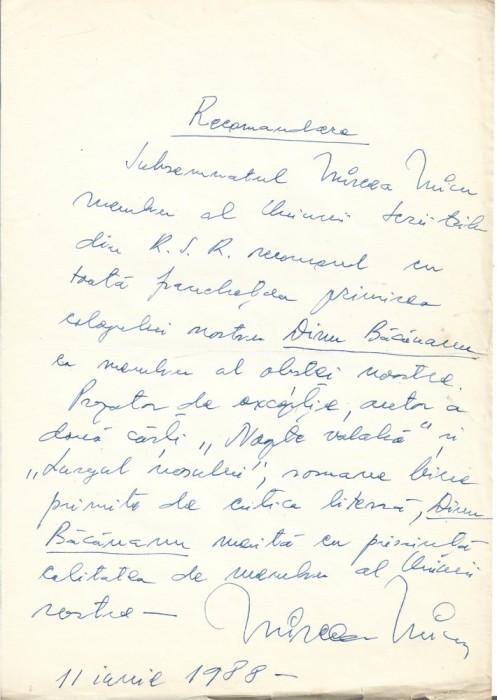 Recomandare
Subsemnatul Mircea Micu
membru al Uniunii Scriitorilor
din R. S. R. recomand cu
toată franchețea primirea
colegului nostru Dinu Băcăuanu
ca membru al obștei noastre.
Prozator de excepție, autor a
două cărți „Noapte valahă" și
„Lungul nosului", romane bine
primite de critica literară, Dinu
Băcăuanu merită cu prisosință
calitatea de membru al Uniunii
nostre —
Mircea Micu
11 iunie 1988 —